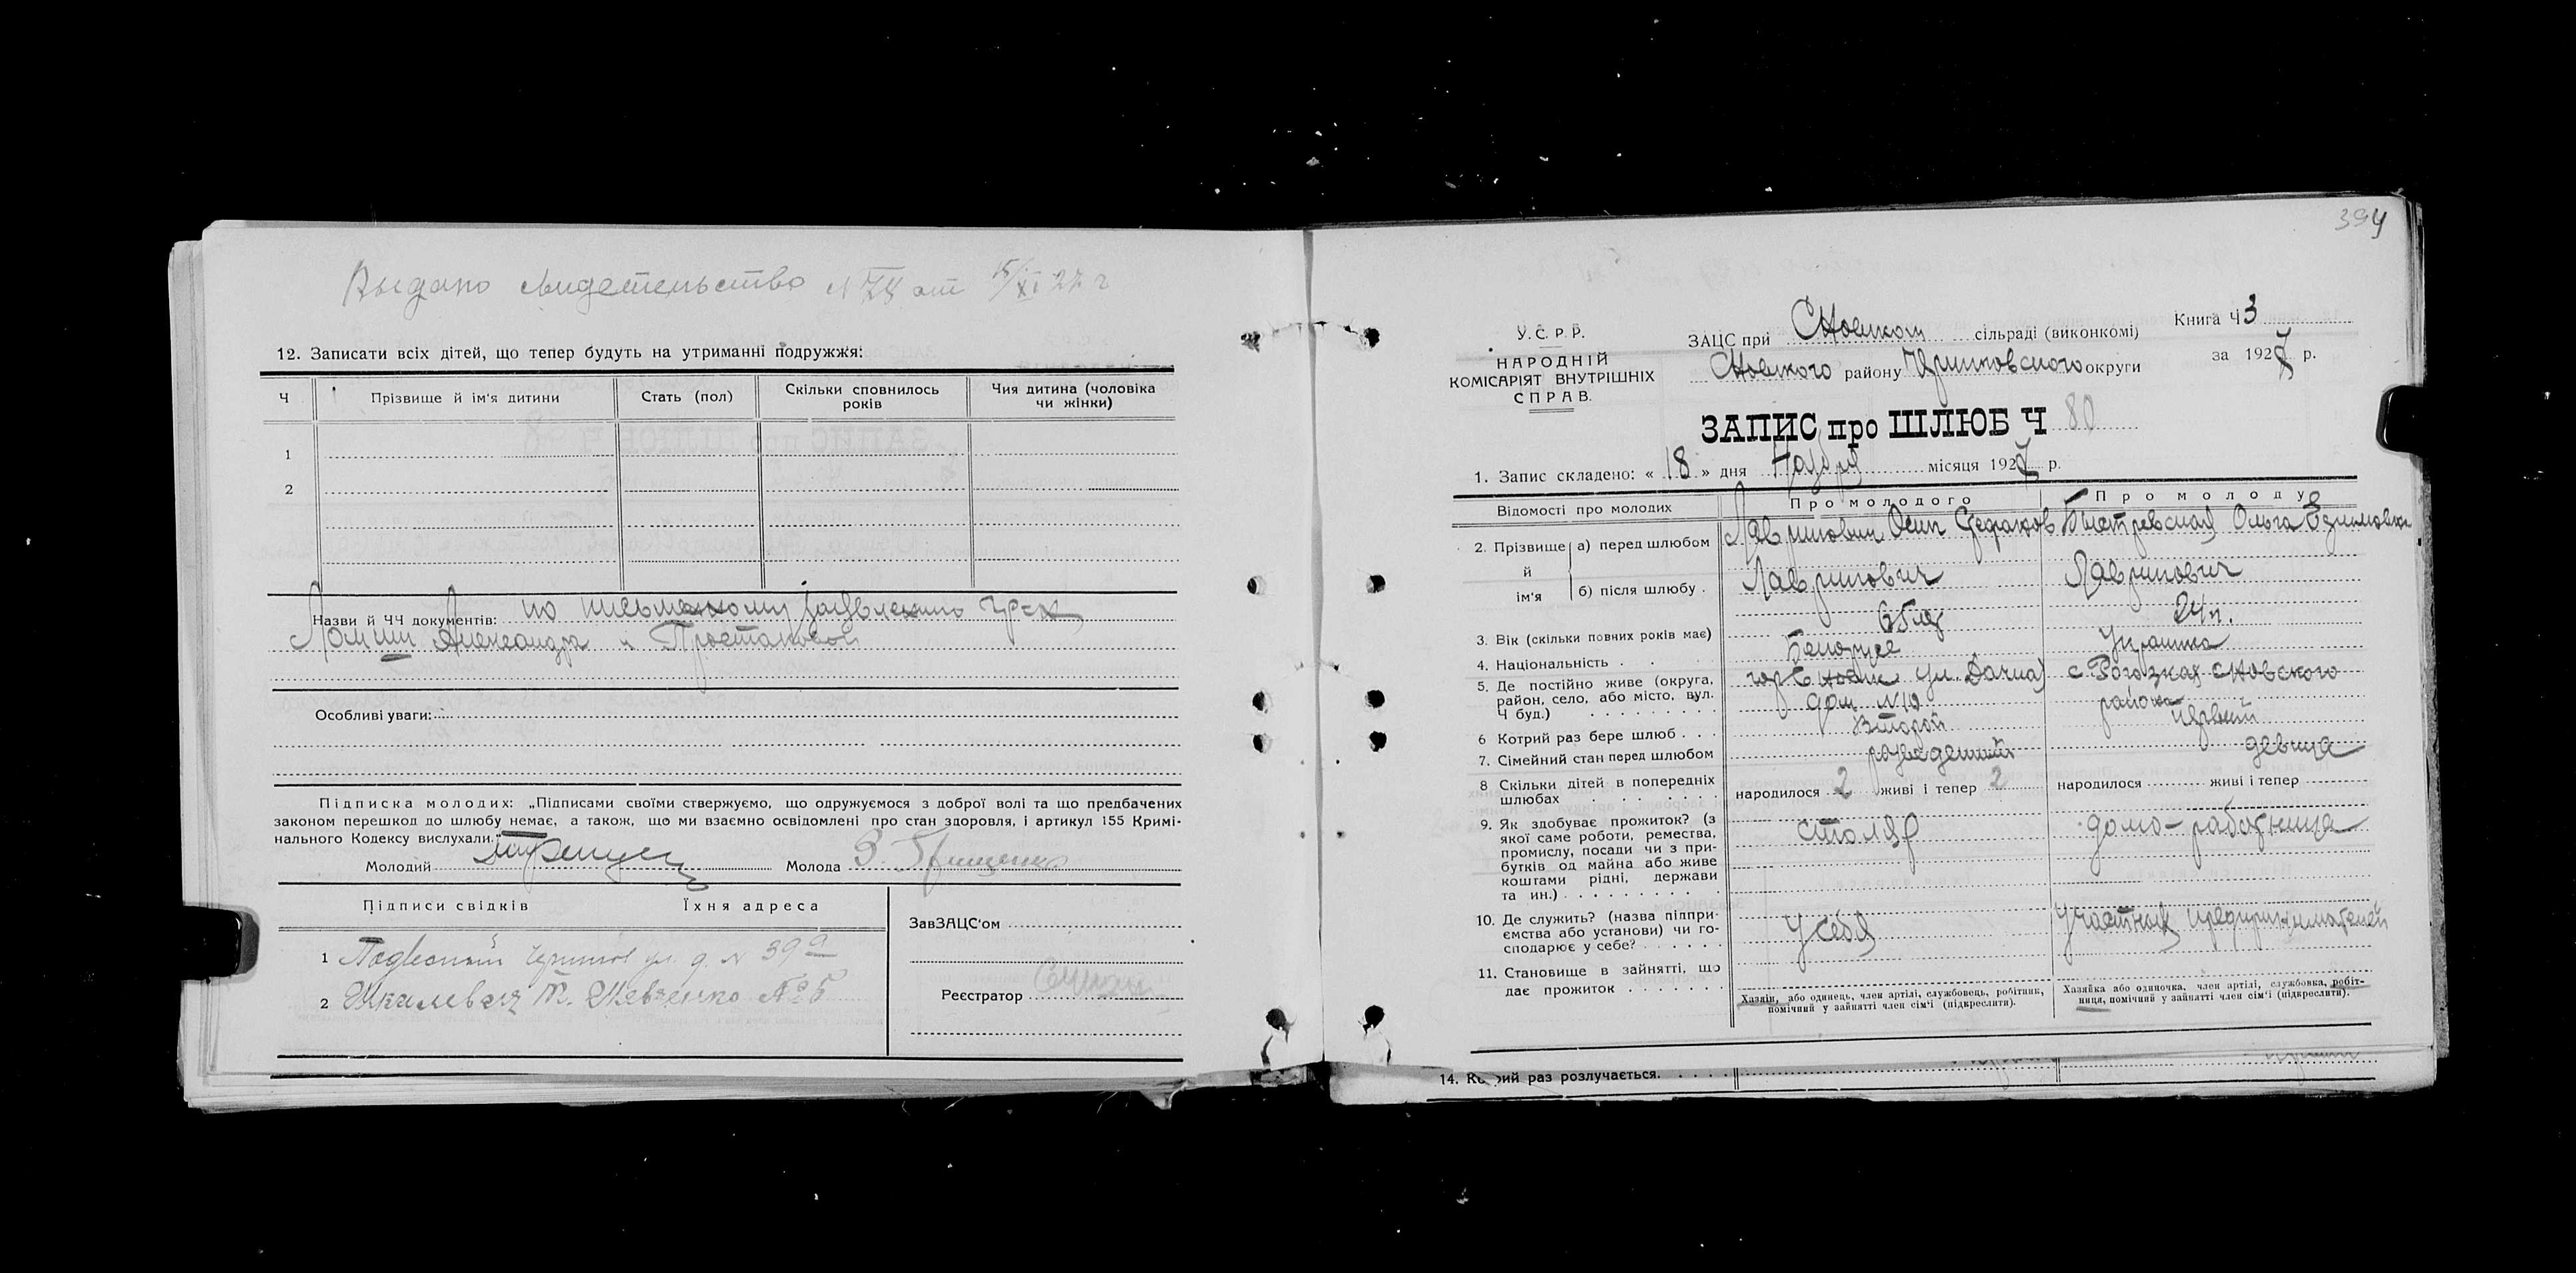 Выдано свидетельство N 78 от 15/XI 27 г
12. Записати всіх дітей, що тепер будуть на утриманні подружжя:
Ч Прізвище й ім'я дитини Стать (пол) Скільки сповнилось років Чия дитина (чоловіка чи жінки)
1
2
Назви й ЧЧ документів: по письменному заявлению гр-н
Александра и
Особливі уваги:
Підписка молодих: „Підписами своїми ствержуємо, що одружуємося з доброї волі та що предбачених
законом перешкод до шлюбу немає, а також, що ми взаємно освідомлені про стан здоровля, і артикул 155 Кримі-
нального Кодексу вислухали."
Молодий Молода
Підписи свідків Їхня адреса
ЗавЗАЦС'ом
1 ул. д. N 39
2 Шевченко № 5
Реєстратор
394
У.С.Р.Р.
НАРОДНІЙ
КОМІСАРІЯТ ВНУТРІШНІХ
СПРАВ.
ЗАЦС при Сновском сільраді (виконкомі)
Книга Ч 3
Сновского району округи
за 1927 р.
ЗАПИС про ШЛЮБ Ч 80
1. Запис складено: « 18 » дня Ноября місяця 1927 р.
Відомості про молодих Про молодого Про молоду
2. Прізвище й ім'я а) перед шлюбом Лавринович Осип Ольга
б) після шлюбу . Лавринович Лавринович
3. Вік (скільки повних років має) 24 л.
4. Національність . . . Белорусс Украинка
5. Де постійно живе (округа, район, село, або місто, вул. Ч буд.) . . . гор Сновск ул. Дачная дом N 10 с Рогозках Сновского района
6 Котрий раз бере шлюб . . . Второй Первый
7. Сімейний стан перед шлюбом разведенный девица
8 Скільки дітей в попередніх шлюбах . . . народилося 2 живі і тепер 2 народилося живі і тепер
9. Як здобуває прожиток? (з якої саме роботи, ремества, промислу, посади чи з прибутків од майна або живе коштами рідні, держави та ин.) . . . столяр домо-работница
10. Де служить? (назва підпри-ємства або установи) чи го-сподарює у себе? . . . У себя
11. Становище в зайнятті, що дає прожиток . . .
Хазяїн, або одинець, член артілі, службовець, робітник, помічний у зайнятті член сім'ї (підкреслити).
Хазяйка або одиночка, член артілі, службовка, робіт-ниця, помічний у зайнятті член сім'ї (підкреслити).
14. Котрий раз розлучається.